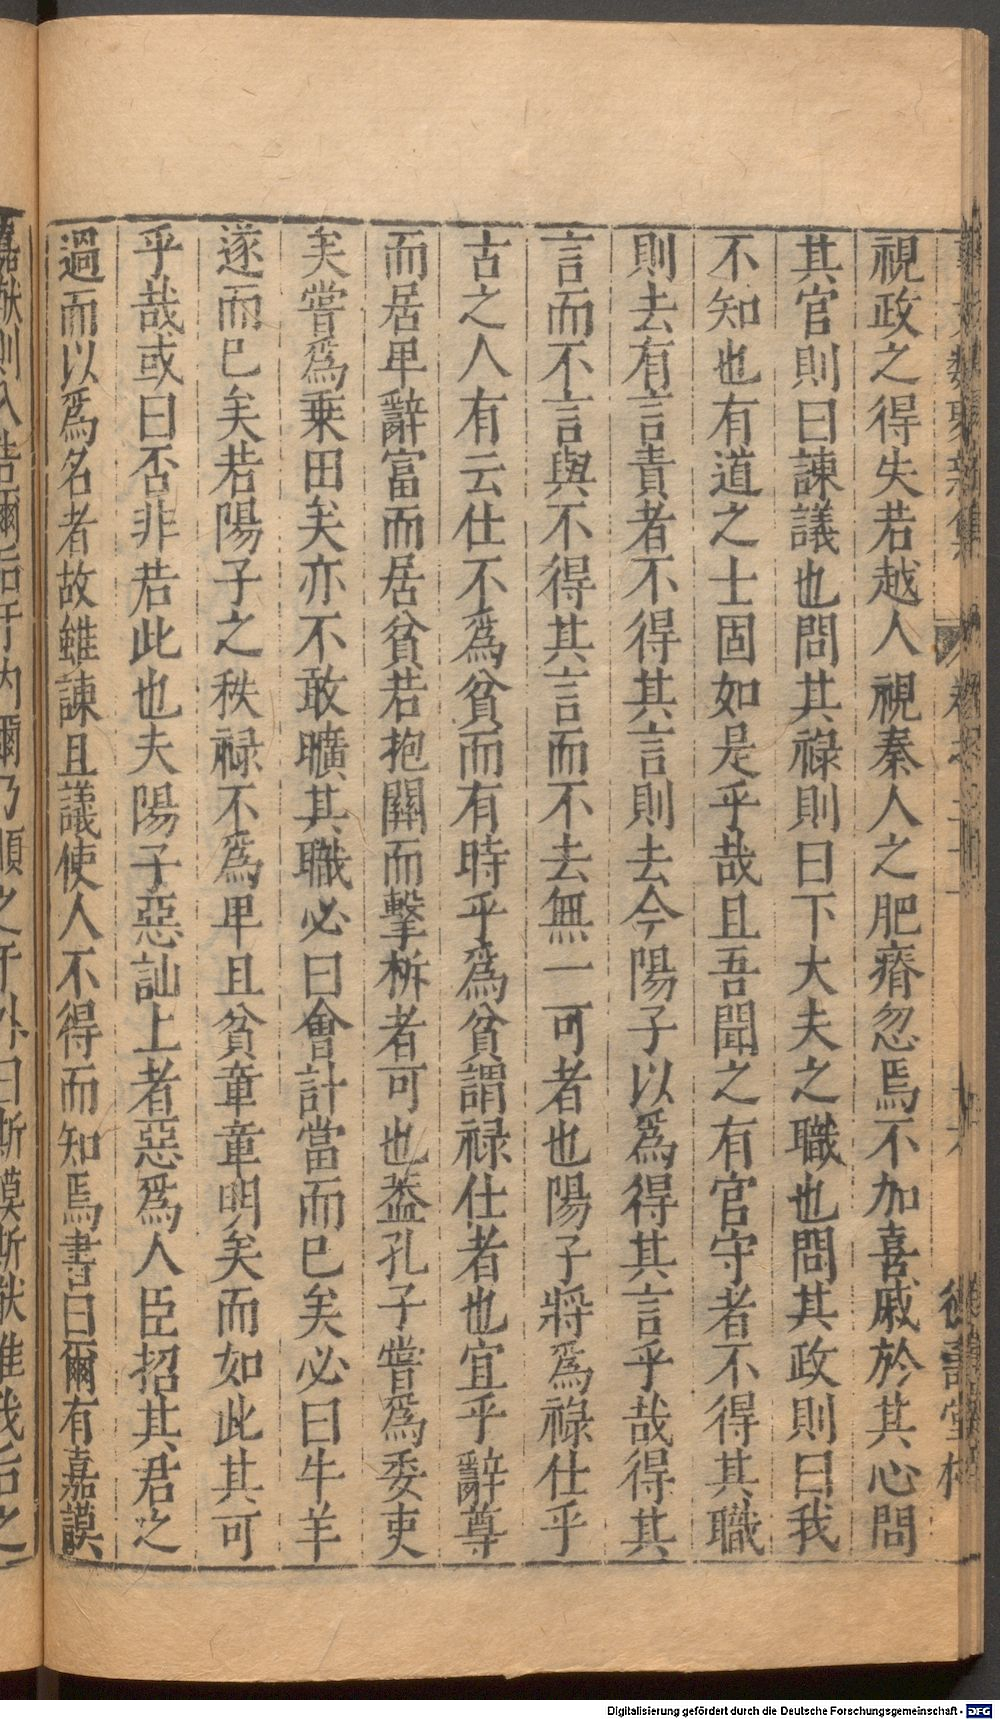 視政之得失若越人視秦人之肥瘠忽焉不加喜戚於其心問
其官則曰諫議也問其祿則曰下大夫之職也問其政則曰我
不知也有道之士固如是乎哉且吾聞之有官守者不得其職
則去有言責者不得其言則去今陽子以爲得其言乎哉得其
言而不言與不得其言而不去無一可者也陽子將爲祿仕乎
古之人有云仕不爲貧而有時乎爲貧謂祿仕者也宜乎辭尊
而居卑辭富而居貧若抱關而擊柝者可也葢孔子嘗爲委吏
矣嘗爲乗田矣亦不敢曠其職必曰會計當而已矣必曰牛羊
遂而已矣若陽子之秩禄不爲卑且貧章章明矣而如此其可
乎哉或曰否非若此也夫陽子惡訕上者惡爲人臣招其君之
過而以爲名者故雖諫且議使人不得而知焉書曰爾有嘉謨
嘉猷則入告爾后于内爾乃順之于外曰斯謨斯猷惟我后之
Digitalisierung gefördert durch die Deutsche Forschungsgemeinschaft - DFG